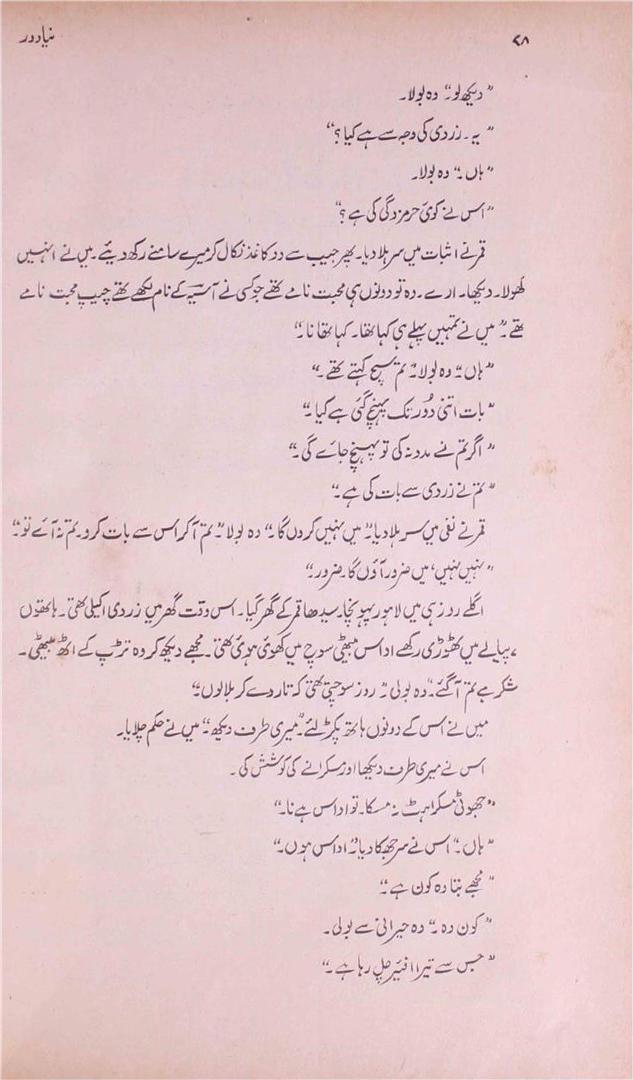 ۲۸
نیا دور
"دیکھ لو" وہ بولا۔
"یہ۔ زردی کی وجہ سے ہے کیا؟"
"ہاں۔" وہ بولا۔
"اس نے کوئی حرمزدگی کی ہے؟"
قمر نے اثبات میں سر ہلا دیا۔ پھر جیب سے دو کاغذ نکال کر میرے سامنے رکھ دیئے۔ میں نے انہیں
کھولا۔ دیکھا۔ ارے۔ وہ تو دونوں ہی محبت نامے تھے جو کسی نے آسیہ کے نام لکھے تھے چیپ محبت نامے
تھے۔ "میں نے تمہیں پہلے ہی کہا تھا۔ کہا تھا نا۔"
"ہاں" وہ بولا "تم سچ کہتے تھے۔"
"بات اتنی دُور تک پہنچ گئی ہے کیا۔"
"اگر تم نے مدد نہ کی تو پہنچ جائے گی۔"
"تم نے زردی سے بات کی ہے۔"
قمر نے نفی میں سر ہلا دیا۔ "میں نہیں کروں گا۔" وہ بولا "تم آکر اس سے بات کرو۔ تم نہ آئے تو۔"
"نہیں نہیں، میں ضرور آؤں گا۔ ضرور۔"
اگلے روز ہی میں لاہور پہونچا۔ سیدھا قمر کے گھر گیا۔ اس وقت گھر میں زردی اکیلی تھی۔ ہاتھوں
کے پیالے میں ٹھوڑی رکھے اداس بیٹھی سوچ میں کھوئی ہوئی تھی۔ مجھے دیکھ کر وہ تڑپ کے اٹھ بیٹھی۔
شکر ہے تم آگئے۔" وہ بولی "روز سوچتی تھی کہ تار دے کر بلا لوں۔"
میں نے اس کے دونوں ہاتھ پکڑ لئے۔ "میری طرف دیکھ۔" میں نے حکم چلایا۔
اس نے میری طرف دیکھا اور مسکرانے کی کوشش کی۔
"جھوٹی مسکراہٹ نہ مسکا۔ تو اداس ہے نا۔"
"ہاں۔" اس نے سر جھکا دیا "اداس ہوں۔"
"مجھے بتا وہ کون ہے۔"
"کون وہ۔" وہ حیرانی سے بولی۔
"جس سے تیرا افیئر چل رہا ہے۔"